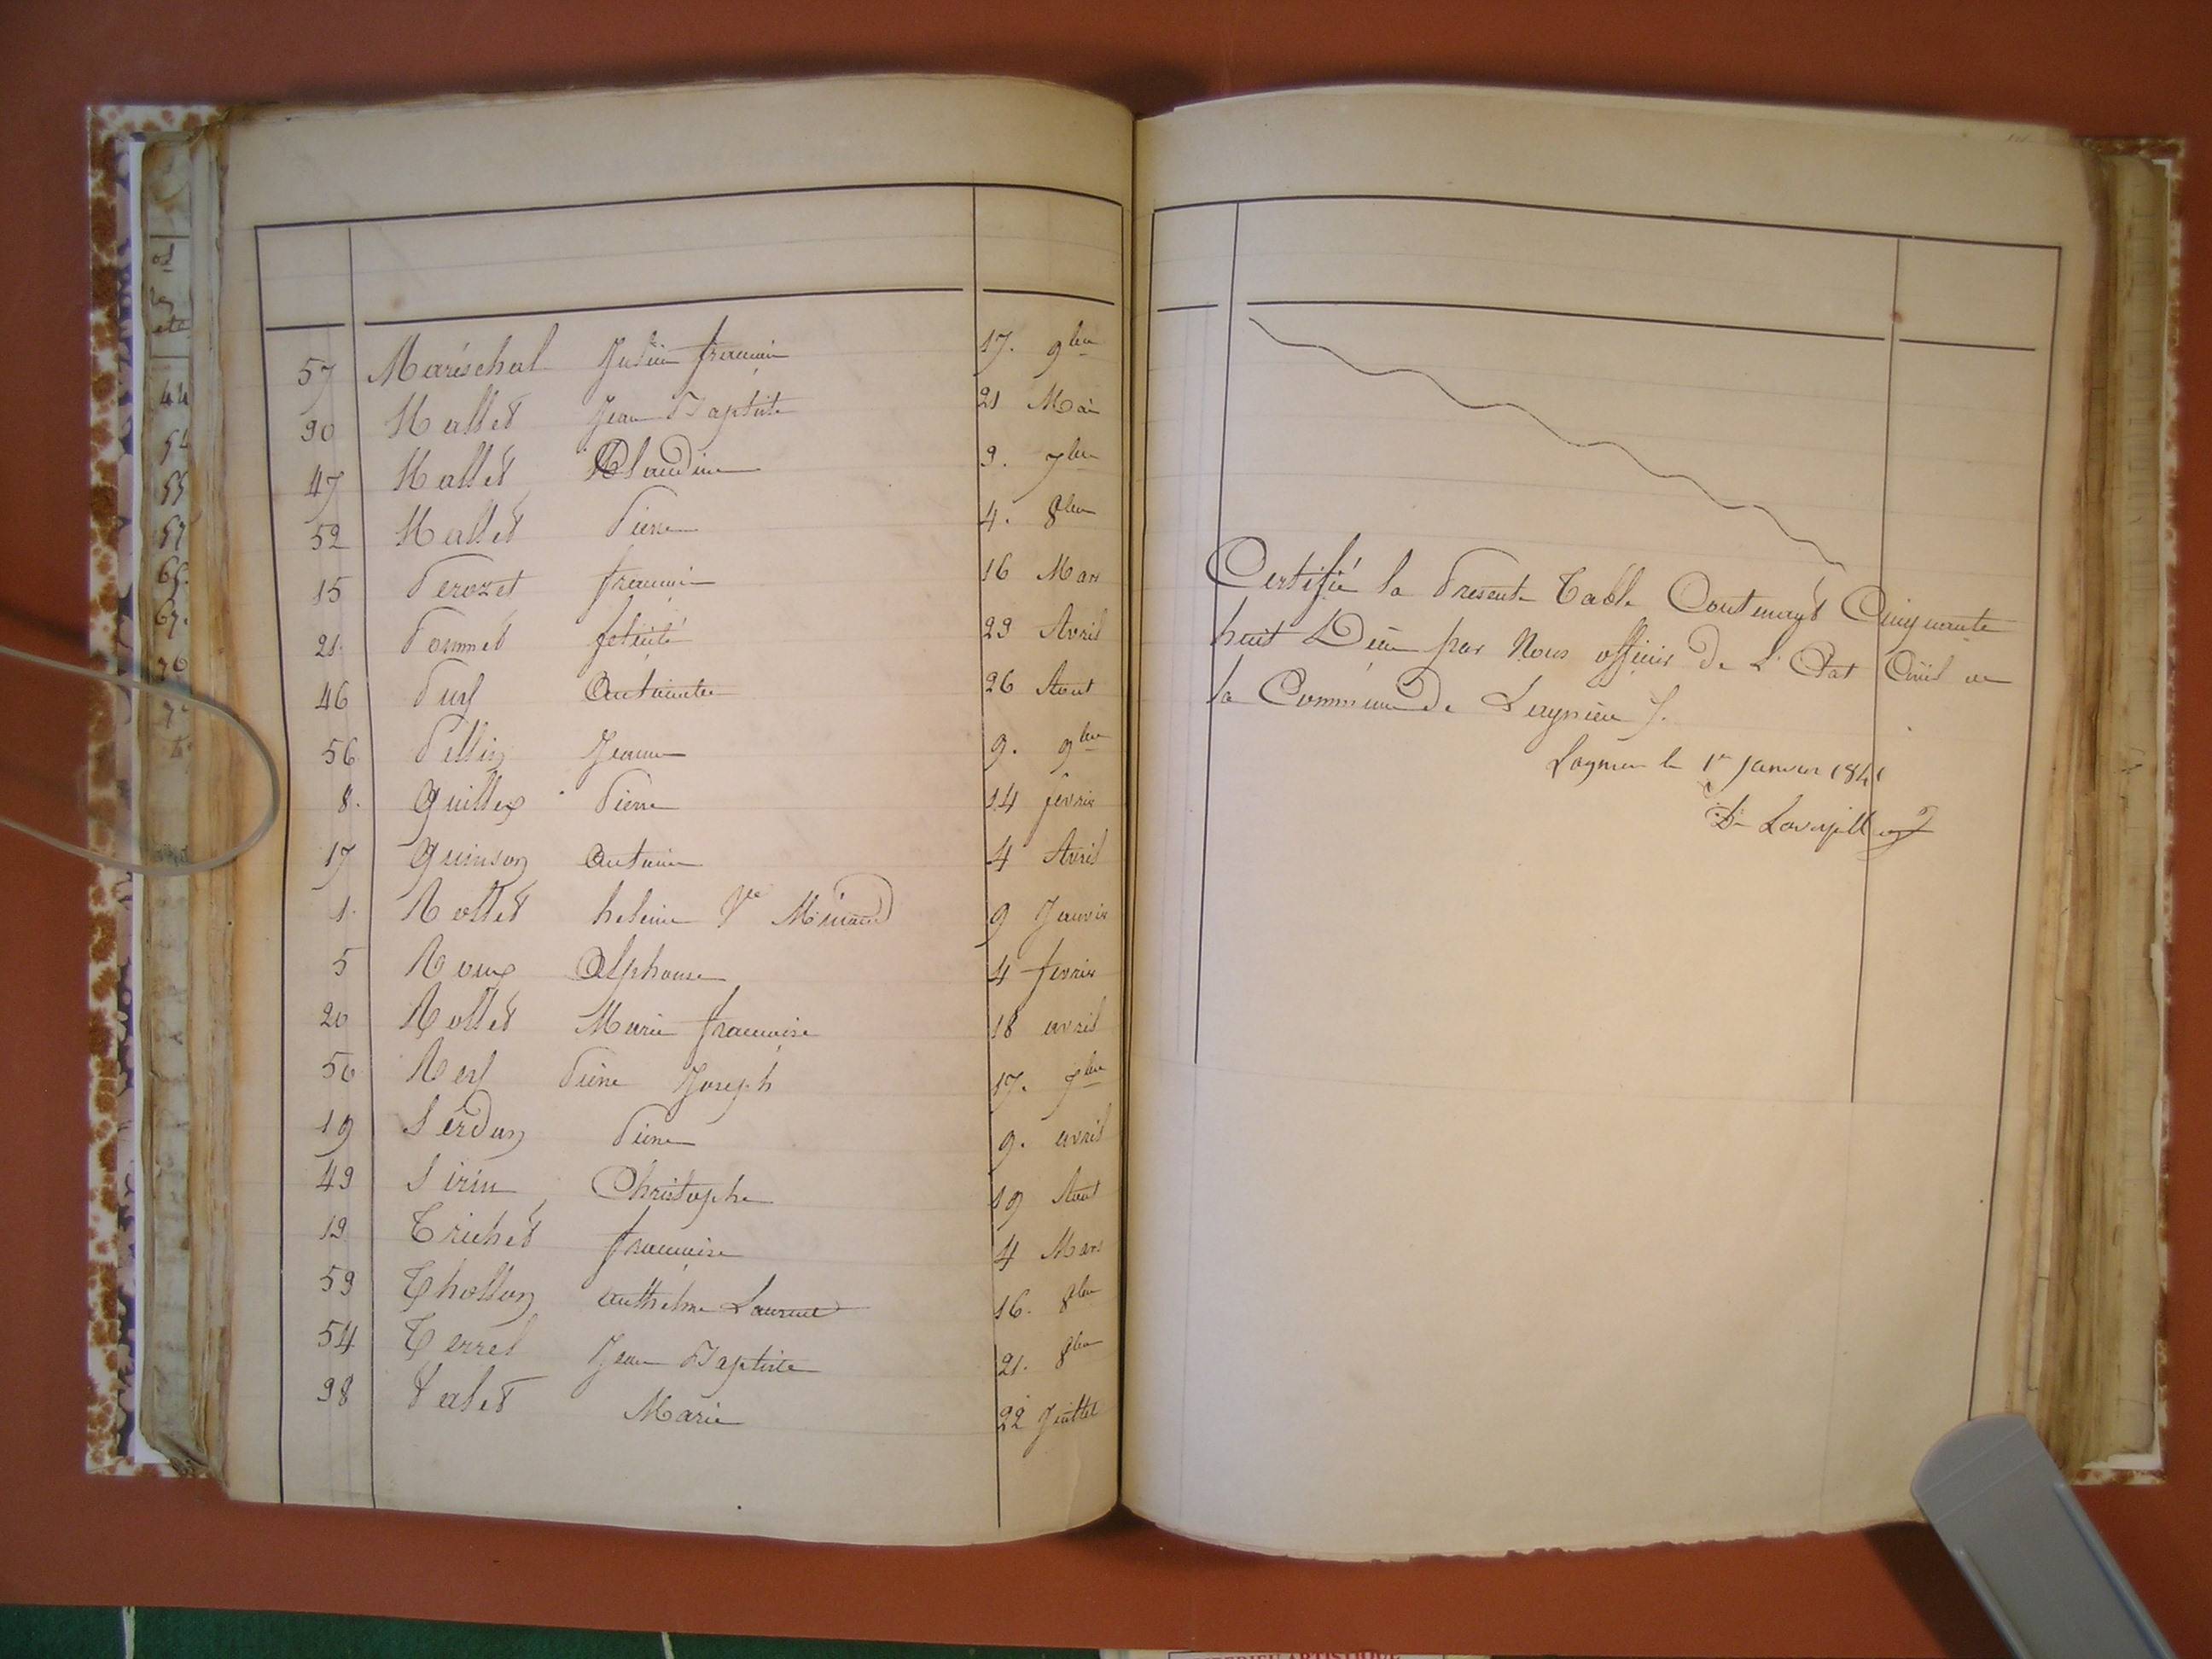 57 Maréschal Julien francois 17. 9bre
30 Mallet Jean Baptiste 21 Mai
47 Mallet Claudine 9. 7bre
52 Mallet Pierre 4. 8bre
15 Perozet francois 16 Mars
21. Pommet felicité 23 Avril
46 Puy Antoinette 26 Aout
56 Pellin Jeanne 9. 9bre
8. Guillex Pierre 14 fevrier
17 Guinson Antoine 4 Avril
1. Rollet heleine Ve Minand 9 Janvier
5 Roux Alphonse 4 fevrier
20 Rollet Marie francoise 18 avril
50 Rey Pierre Joseph 17. 7bre
19 Sérdon Pierre 9. avril
49 Sirin Christophe 19 Aout
12 Trichet francoise 4 Mars
53 Thollon anthelme Laurent 16. 8bre
54 Terrel Jean Baptiste 21. 8bre
38 Valet Marie 22 Juillet
Certifié la Presente Table Contenant Cinquante
huit Décés par Nous officier de L'Etat Civil de
la Commune de Lagnieu
Lagnieu le 1er Janvier 1841